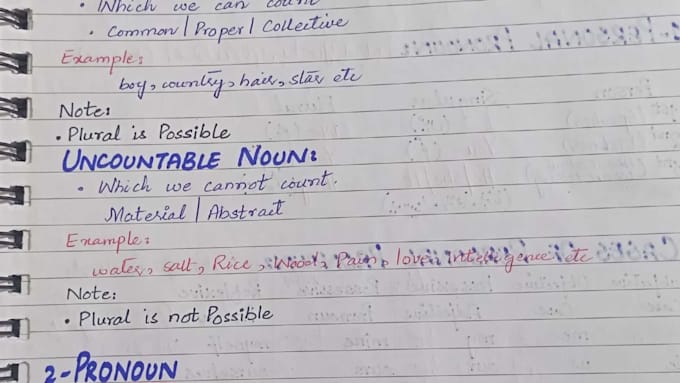 • Which we can count
• Common | Proper | Collective
Example:
boy, country, hair, star etc
Note:
• Plural is Possible
UNCOUNTABLE NOUN:
• Which we cannot count.
Material | Abstract
Example:
water, salt, Rice, Wood, Pain, love, intelligence etc
Note:
• Plural is not Possible
2-PRONOUN